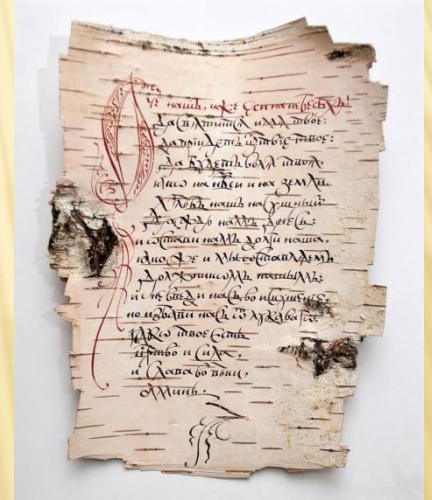 Ѻтче нашъ, иже еси на небесѣхъ
да свѧтитсѧ имѧ твое:
да прїидетъ црт҃вїе твое:
да будетъ волѧ твоѧ
ꙗко на нб҃си и на земли.
Хлѣбъ нашъ насущный
даждь намъ днесь:
и ѡстави намъ долги наша,
ꙗкоже и мы ѡставлѧемъ
должникомъ нашымъ:
и не введи насъ во искушенїе
но избави насъ ѿ лукаваго
ꙗкѡ твое есть
црт҃во и сила,
и слава во вѣки,
аминь.